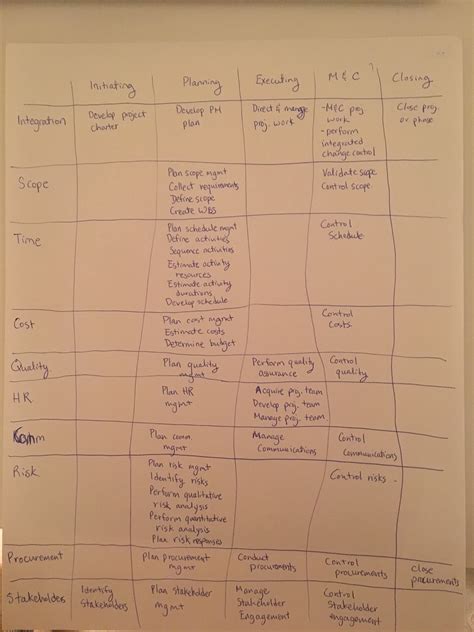 Initiating Planning Executing M & C Closing
Integration Develop project Develop PM Direct & manage -M&C proj. Close proj.
charter plan proj. work work or phase
- perform
integrated
change control
Scope Plan scope mgmt Validate scope
Collect requirements Control scope
Define scope
Create WBS
Time Plan schedule mgmt Control
Define activities Schedule
Sequence activities
Estimate activity
resources
Estimate activity
durations
Develop schedule
Cost Plan cost mgmt Control
Estimate costs Costs.
Determine budget
Quality Plan quality Perform quality Control
mgmt assurance quality
HR Plan HR Acquire proj. team
mgmt Develop proj. team
Manage proj. team
Comm Plan comm. Manage Control
mgmt Communications Communications
Risk Plan risk mgmt Control risks.
Identify risks
Perform qualitative
risk analysis
Perform quantitative
risk analysis
Plan risk responses
Procurement Plan procurement Conduct Control Close
mgmt procurements procurements procurements
Stakeholder Identify Plan stakeholder Manage Control
Stakeholders mgmt Stakeholder Stakeholder
Engagement Engagement